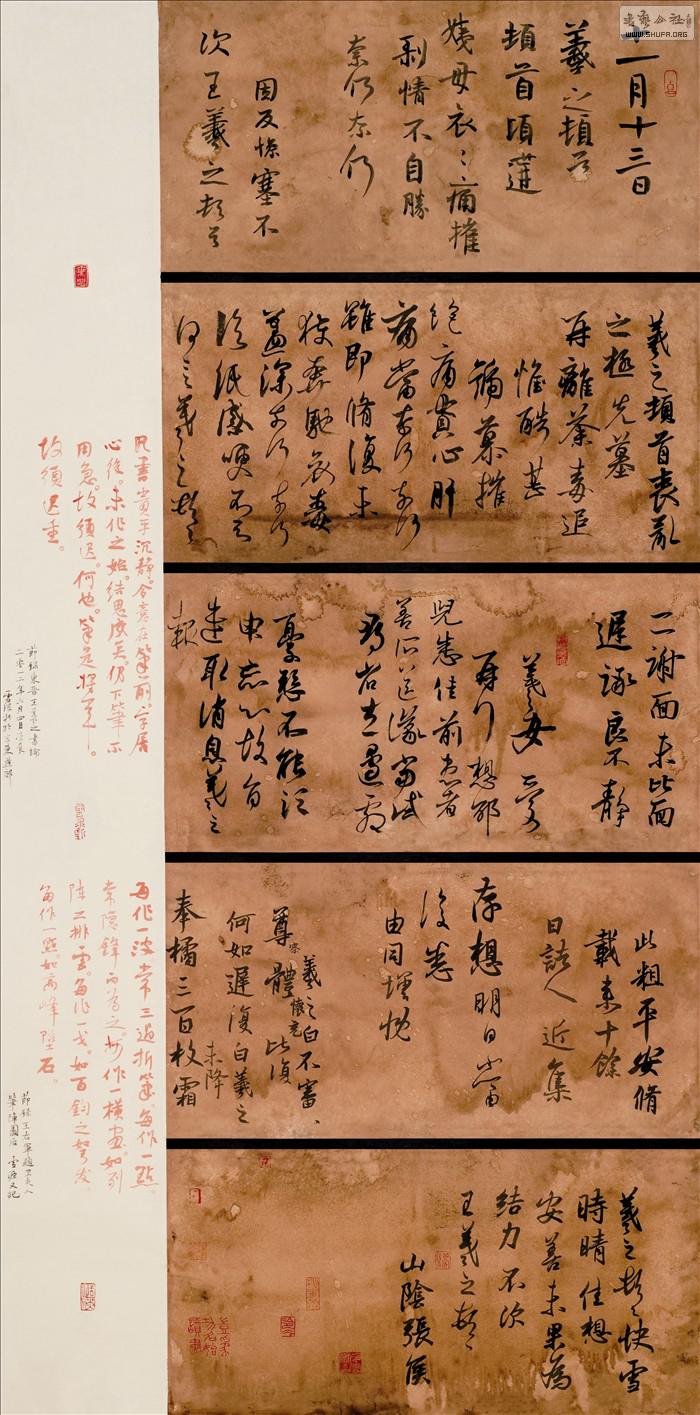 書法公社
WWW.SHUFA.ORG
十一月十三日
羲之頓首
頓首頃遘
姨母哀哀痛摧
剥情不自勝
奈何奈何
因反惨塞不
次王羲之頓首
羲之頓首喪亂
之極先墓
再離荼毒追
惟酷甚
號慕摧
絶痛貫心肝
痛當奈何奈何
雖即脩復未
獲奔馳哀毒
益深奈何奈何
臨紙感哽不知
何言羲之頓首
二謝面未比面
遲詠良不静
羲女愛
再行想邵
兒悉佳前患者
善所送議當試
尋省左邊劇
憂懸不能須
申忘心故旨
遣取消息羲之
報
此粗平安脩
載来十餘
日諸人近集
存想明日當
復悉
由同増慨
羲之白不審
尊體比復
何如遲復白羲之
奉橘三百枚霜
未降
羲之頓首快雪
時晴佳想
安善未果為
結力不次
王羲之頓首
山陰張侯
凡書貴乎沉静。令意在筆前，字居
心後。未作之始，结思成矣。仍下筆不
用急。故須遲。何也。筆是將軍。
故須遲重。
節録東晋王羲之書論
二零一二年六月四日
每作一波常三過折筆。每作一點。
常隱鋒而為之。每作一横畫。如列
陣之排雲。每作一戈。如百鈞之弩发。
每作一點。如高峰墜石。
節録王右軍題卫夫人
筆陣圖后